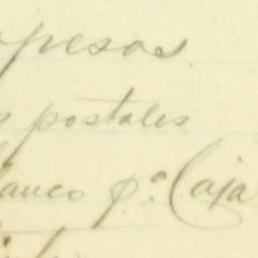 pesos
postales
blanco p.ª Caja